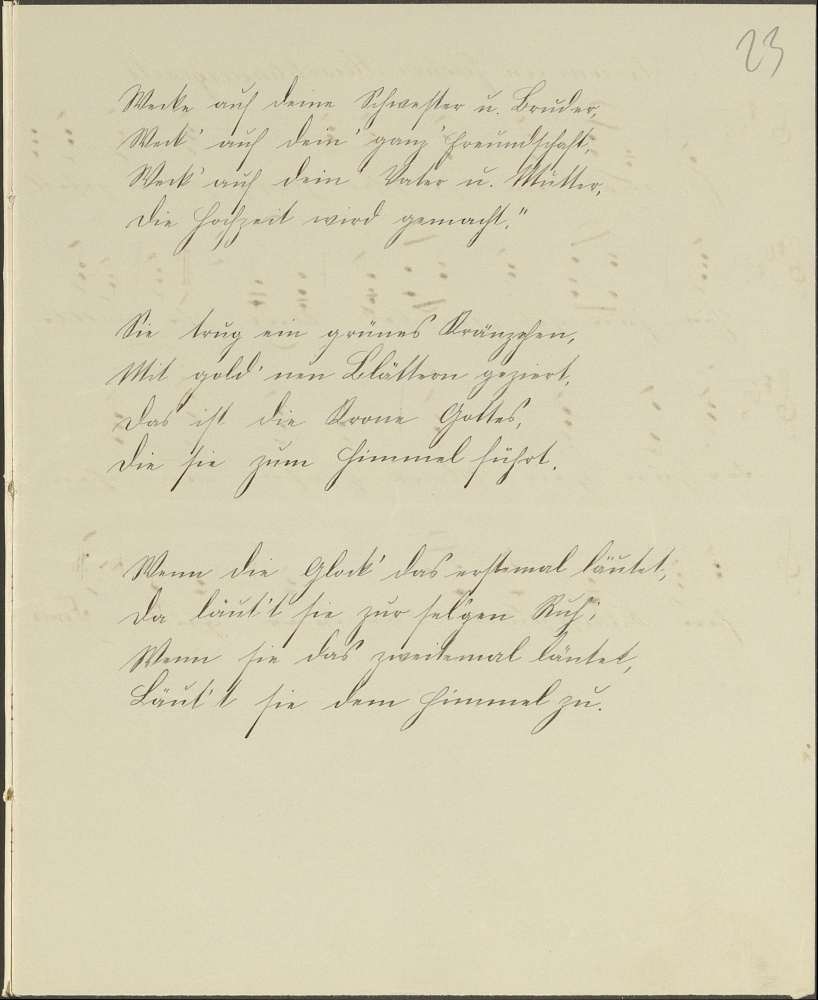 23
Wecke auf deine Schwester u. Bruder,
Weck' auf dein' ganz' Freundschaft,
Weck' auf dein' Vater u. Mutter,
Die Hochzeit wird gemacht."
Sie trug ein grünes Kränzchen,
Mit gold'nen Blättern geziert,
Das ist die Krone Gottes,
Die sie zum Himmel führt.
Wenn die Glock' das erstemal läutet,
Da läut't sie zur sel'gen Ruh';
Wenn sie das zweitemal läutet,
Läut't sie dem Himmel zu.